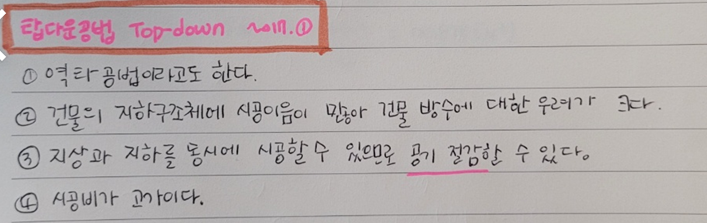 탑다운공법 Top-down 2017.①
① 역타공법이라고도 한다.
② 건물의 지하구조체에 시공이음이 많아 건물 방수에 대한 우려가 크다.
③ 지상과 지하를 동시에 시공할 수 있으므로 공기 절감할 수 있다.
④ 시공비가 고가이다.